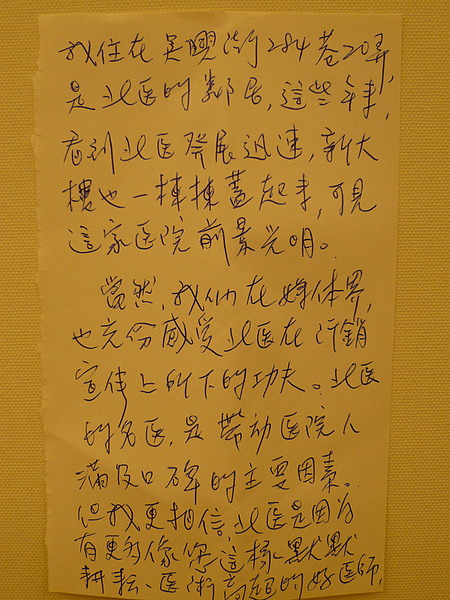 我住在吳興街284巷20弄,
是北医的鄰居,這些年来,
看到北医發展迅速,新大
樓也一棟棟蓋起来,可見
這家医院前景光明。
當然,我们在媒体界,
也充份感受北医在行銷
宣传上所下的功夫。北医
的名医,是帶动医院人
滿及口碑的主要因素。
但我更相信,北医是因为
有更多像您這樣默默
耕耘、医術高超的好医師,